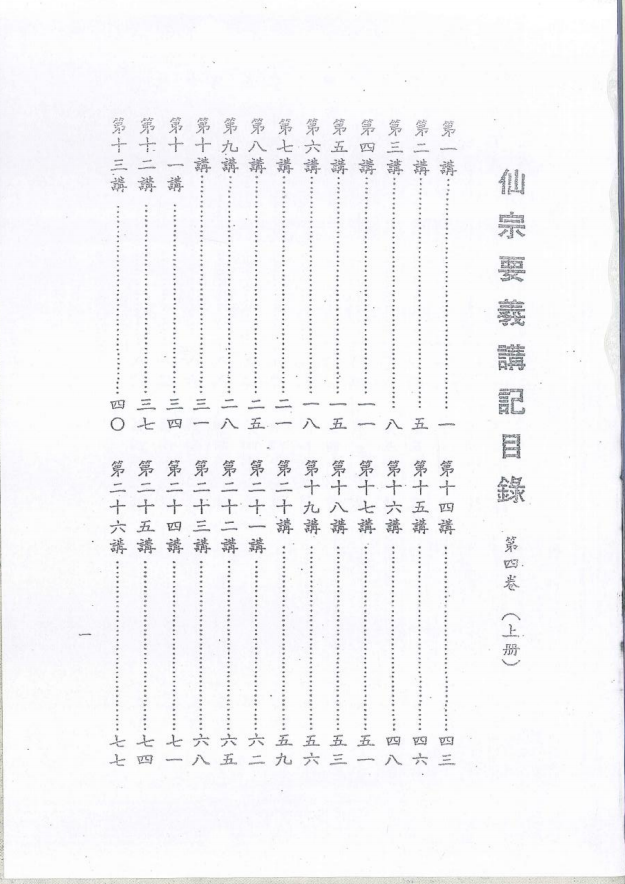 仙宗要義講記目錄 第四卷（上册）
第一講……………………一
第二講……………………五
第三講……………………八
第四講……………………一一
第五講……………………一五
第六講……………………一八
第七講……………………二一
第八講……………………二五
第九講……………………二八
第十講……………………三一
第十一講……………………三四
第十二講……………………三七
第十三講……………………四〇
第十四講……………………四三
第十五講……………………四六
第十六講……………………四八
第十七講……………………五一
第十八講……………………五三
第十九講……………………五六
第二十講……………………五九
第二十一講……………………六二
第二十二講……………………六五
第二十三講……………………六八
第二十四講……………………七一
第二十五講……………………七四
第二十六講……………………七七
一